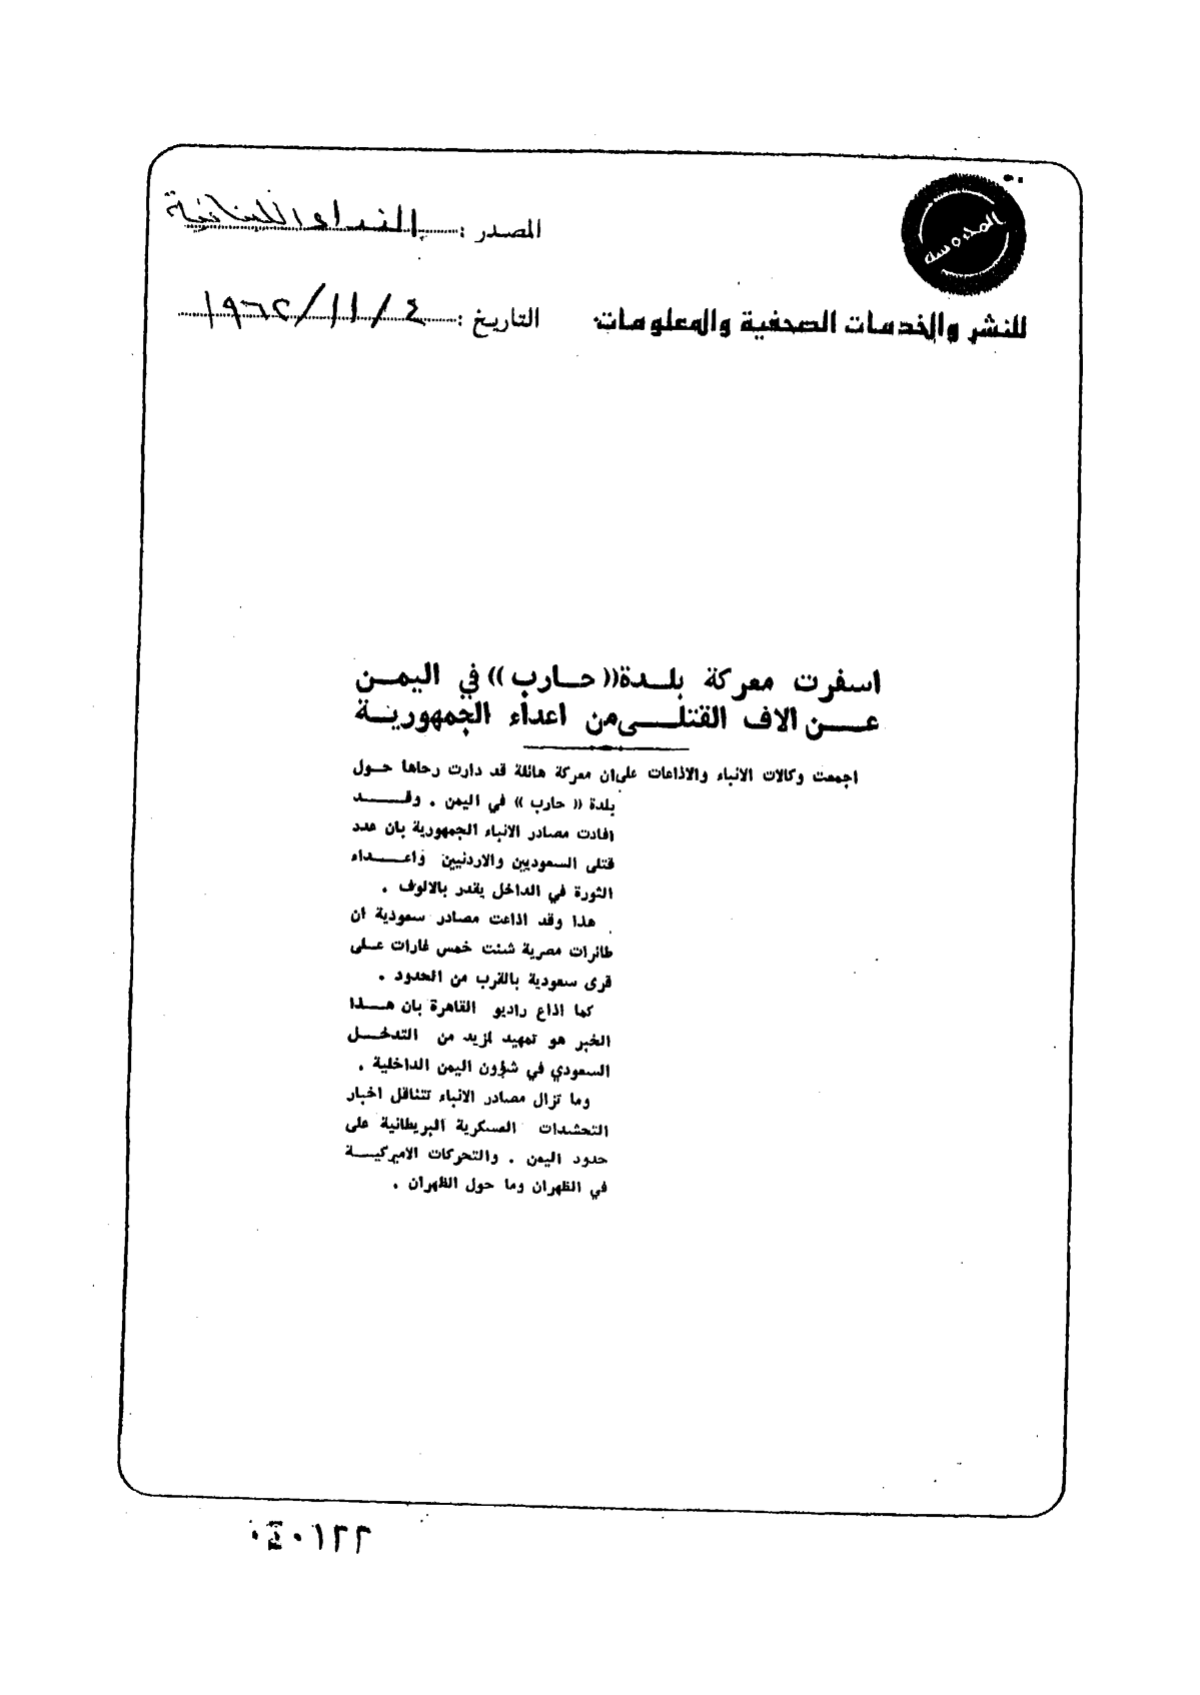 المحروسة
المصدر : النداء اللبنانية
للنشر والخدمات الصحفية والمعلومات
التاريخ : ٤ / ١١ / ١٩٦٢
اسفرت معركة بلدة (( حارب )) في اليمن
عن الاف القتلى من اعداء الجمهورية
اجمعت وكالات الانباء والاذاعات على ان معركة هائلة قد دارت رحاها حول
بلدة (( حارب )) في اليمن . وقد
افادت مصادر الانباء الجمهورية بان عدد
قتلى السعوديين والاردنيين واعداء
الثورة في الداخل يقدر بالالوف .
هذا وقد اذاعت مصادر سعودية ان
طائرات مصرية شنت خمس غارات على
قرى سعودية بالقرب من الحدود .
كما اذاع راديو القاهرة بان هذا
الخبر هو تمهيد لمزيد من التدخل
السعودي في شؤون اليمن الداخلية .
وما تزال مصادر الانباء تتناقل اخبار
التحشدات العسكرية البريطانية على
حدود اليمن . والتحركات الاميركية
في الظهران وما حول الظهران .